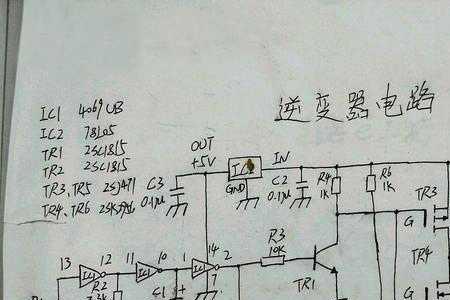 逆变器电路
IC1 4069UB
IC2 78L05
TR1 2SC1815
TR2 2SC1815
TR3、TR5 2SJ471
TR4、TR6
OUT
+5V
IN
GND
C3
0.1μ
C2
0.1μ
R4
1K
R6
1K
TR3
G
TR4
G
R3
10K
TR1
13
IC1
12
11
IC1
10
1
IC1
14
7
2
R2
C1
+